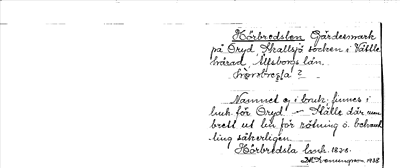 Hörbredslen Gärdesmark
på Öryd Skallsjö socken i Vättle
härad, Älfsborgs län.
?
Namnet ej i bruk, finnes i
bruk för Öryd — Hälle där man
brett ut lin för rötning o. behand
ling säkerligen
Hörbredsla bruk. 1828.
1928